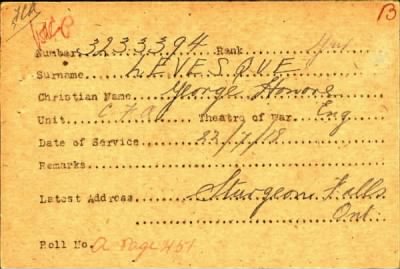 B
Number 3233394 Rank Gnr
Surname LEVESQUE
Christian Name George Honore
Unit C F A Theatre of War Eng
Date of Service 22/7/18
Remarks
Latest Address Sturgeon Falls
Ont.
Roll No. A Page 451